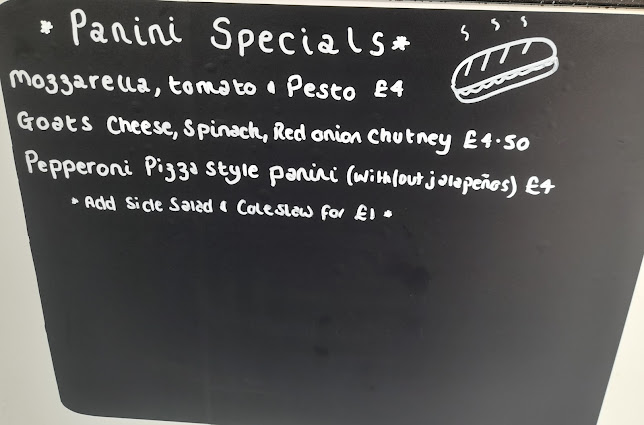 * Panini Specials *
Mozzarella, tomato & Pesto £4
Goats Cheese, Spinach, Red onion Chutney £4.50
Pepperoni Pizza style panini (with/out jalapeños) £4
* Add Side Salad & Coleslaw for £1 *